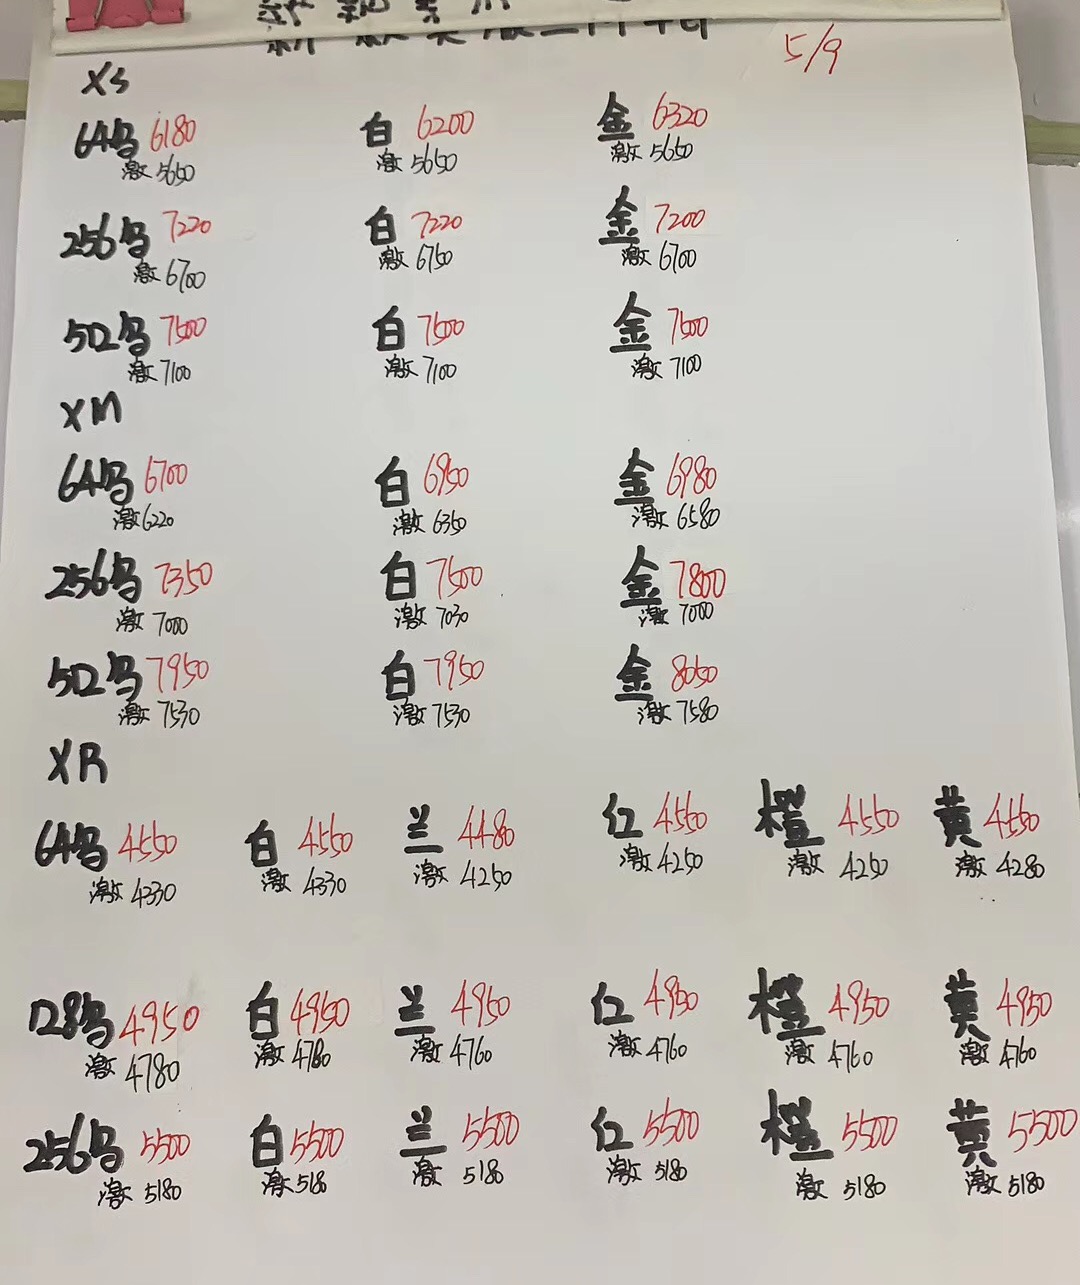 5/9
XS
64乌 6180 白 6200 金 6320
激 5650 激 5650 激 5650
256乌 7220 白 7220 金 7200
激 6700 激 6750 激 6700
512乌 7500 白 7500 金 7500
激 7100 激 7100 激 7100
XM
64乌 6700 白 6950 金 6980
激 6220 激 6350 激 6580
256乌 7350 白 7500 金 7800
激 7000 激 7030 激 7000
512乌 7950 白 7950 金 8050
激 7530 激 7530 激 7580
XR
64乌 4550 白 4550 兰 4480 红 4550 橙 4550 黄 4550
激 4330 激 4330 激 4250 激 4250 激 4250 激 4280
128乌 4950 白 4950 兰 4950 红 4950 橙 4950 黄 4950
激 4780 激 4780 激 4760 激 4760 激 4760 激 4760
256乌 5500 白 5500 兰 5500 红 5500 橙 5500 黄 5500
激 5180 激 5180 激 5180 激 5180 激 5180 激 5180